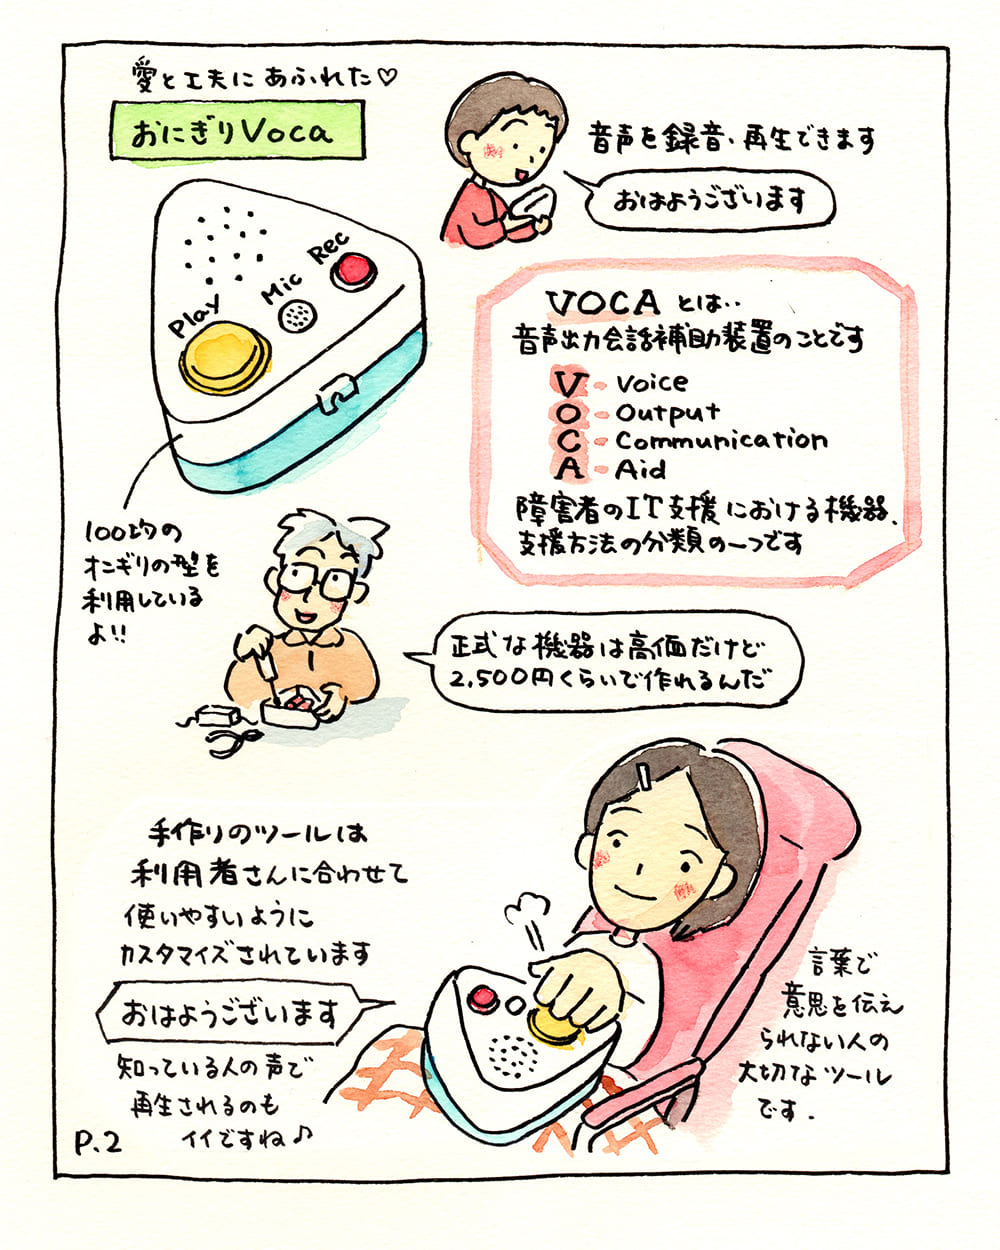 愛と工夫にあふれた♡
おにぎりVoca
音声を録音、再生できます
おはようございます
Play
Mic
Rec
VOCAとは‥
音声出力会話補助装置のことです
V - Voice
O - Output
C - Communication
A - Aid
障害者のIT支援における機器、
支援方法の分類の一つです
100均の
オニギリの型を
利用している
よ!!
正式な機器は高価だけど
2,500円くらいで作れるんだ
手作りのツールは
利用者さんに合わせて
使いやすいように
カスタマイズされています
おはようございます
知っている人の声で
再生されるのも
イイですね♪
言葉で
意思を伝え
られない人の
大切なツール
です.
P.2